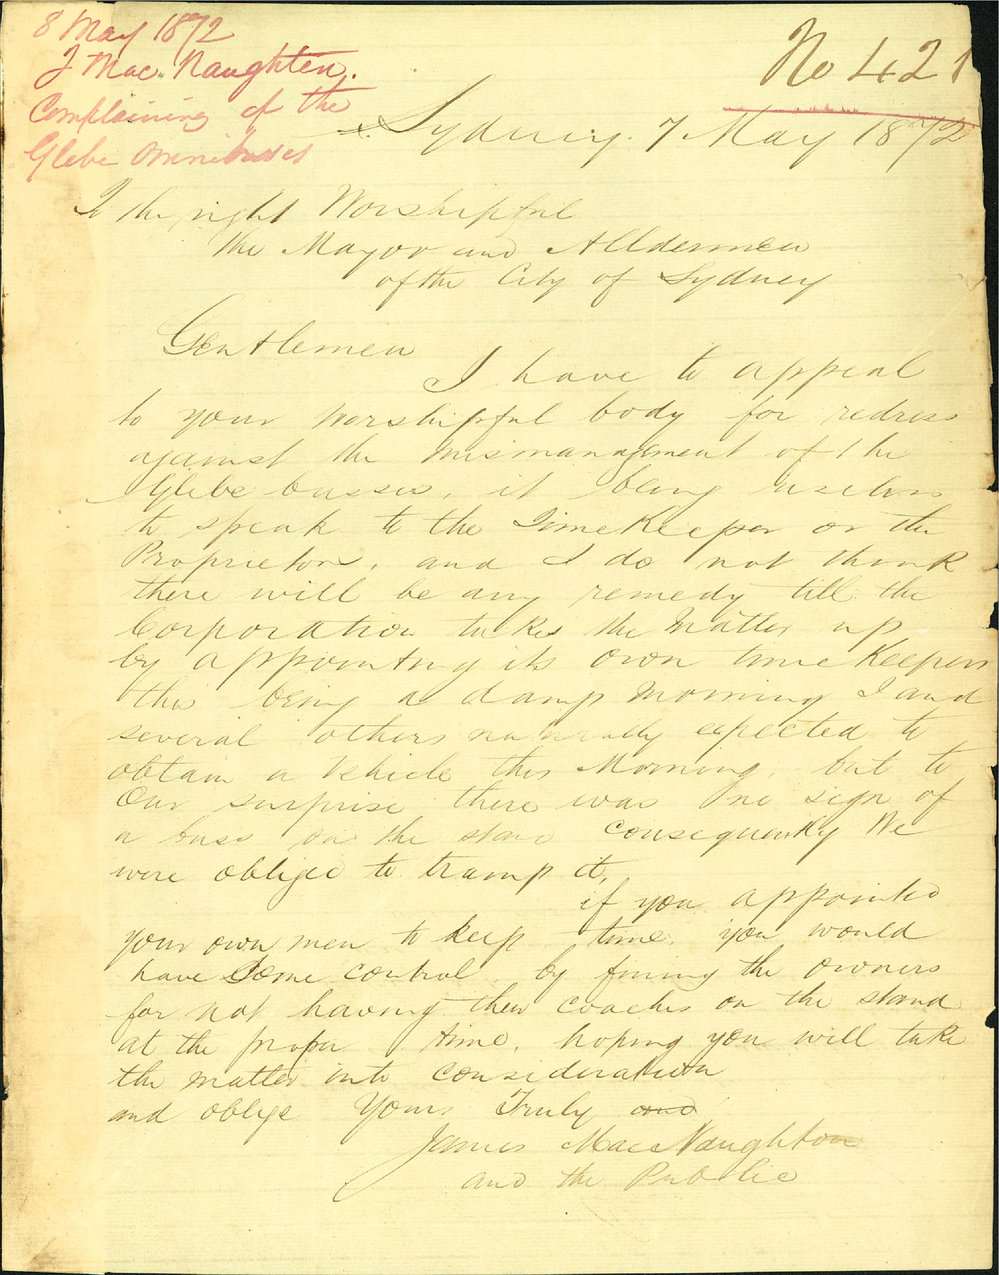 8 May 1872
J Mac Naughten.
Complaining of the
Glebe Omnibusses
No 421
Sydney. 7 May 1872
To the right Worshipful
the Mayor and Alldermen
of the City of Sydney
Gentlemen
I have to appeal
to your Worshipful body for redress
against the Mismanagment of the
Glebe busses, it being useless
to speak to the TimeKeeper or the
Proprietors, and I do not think
there will be any remedy till the
Corporation takes the Matter up
by appointng its own time Keepers
this being a damp Morning I and
several others naturally expected to
obtain a Vehicle this Morning, but to
Our surprise there was no sign of
a buss on the stand consequently We
were obliged to tramp it,
if you appointed
your own men to keep time you would
have Some control by fining the owners
for not having their coaches on the stand
at the proper time, hoping you will take
the matter into consideration
and oblige Yours Truly and
James MacNaughton
and the Public